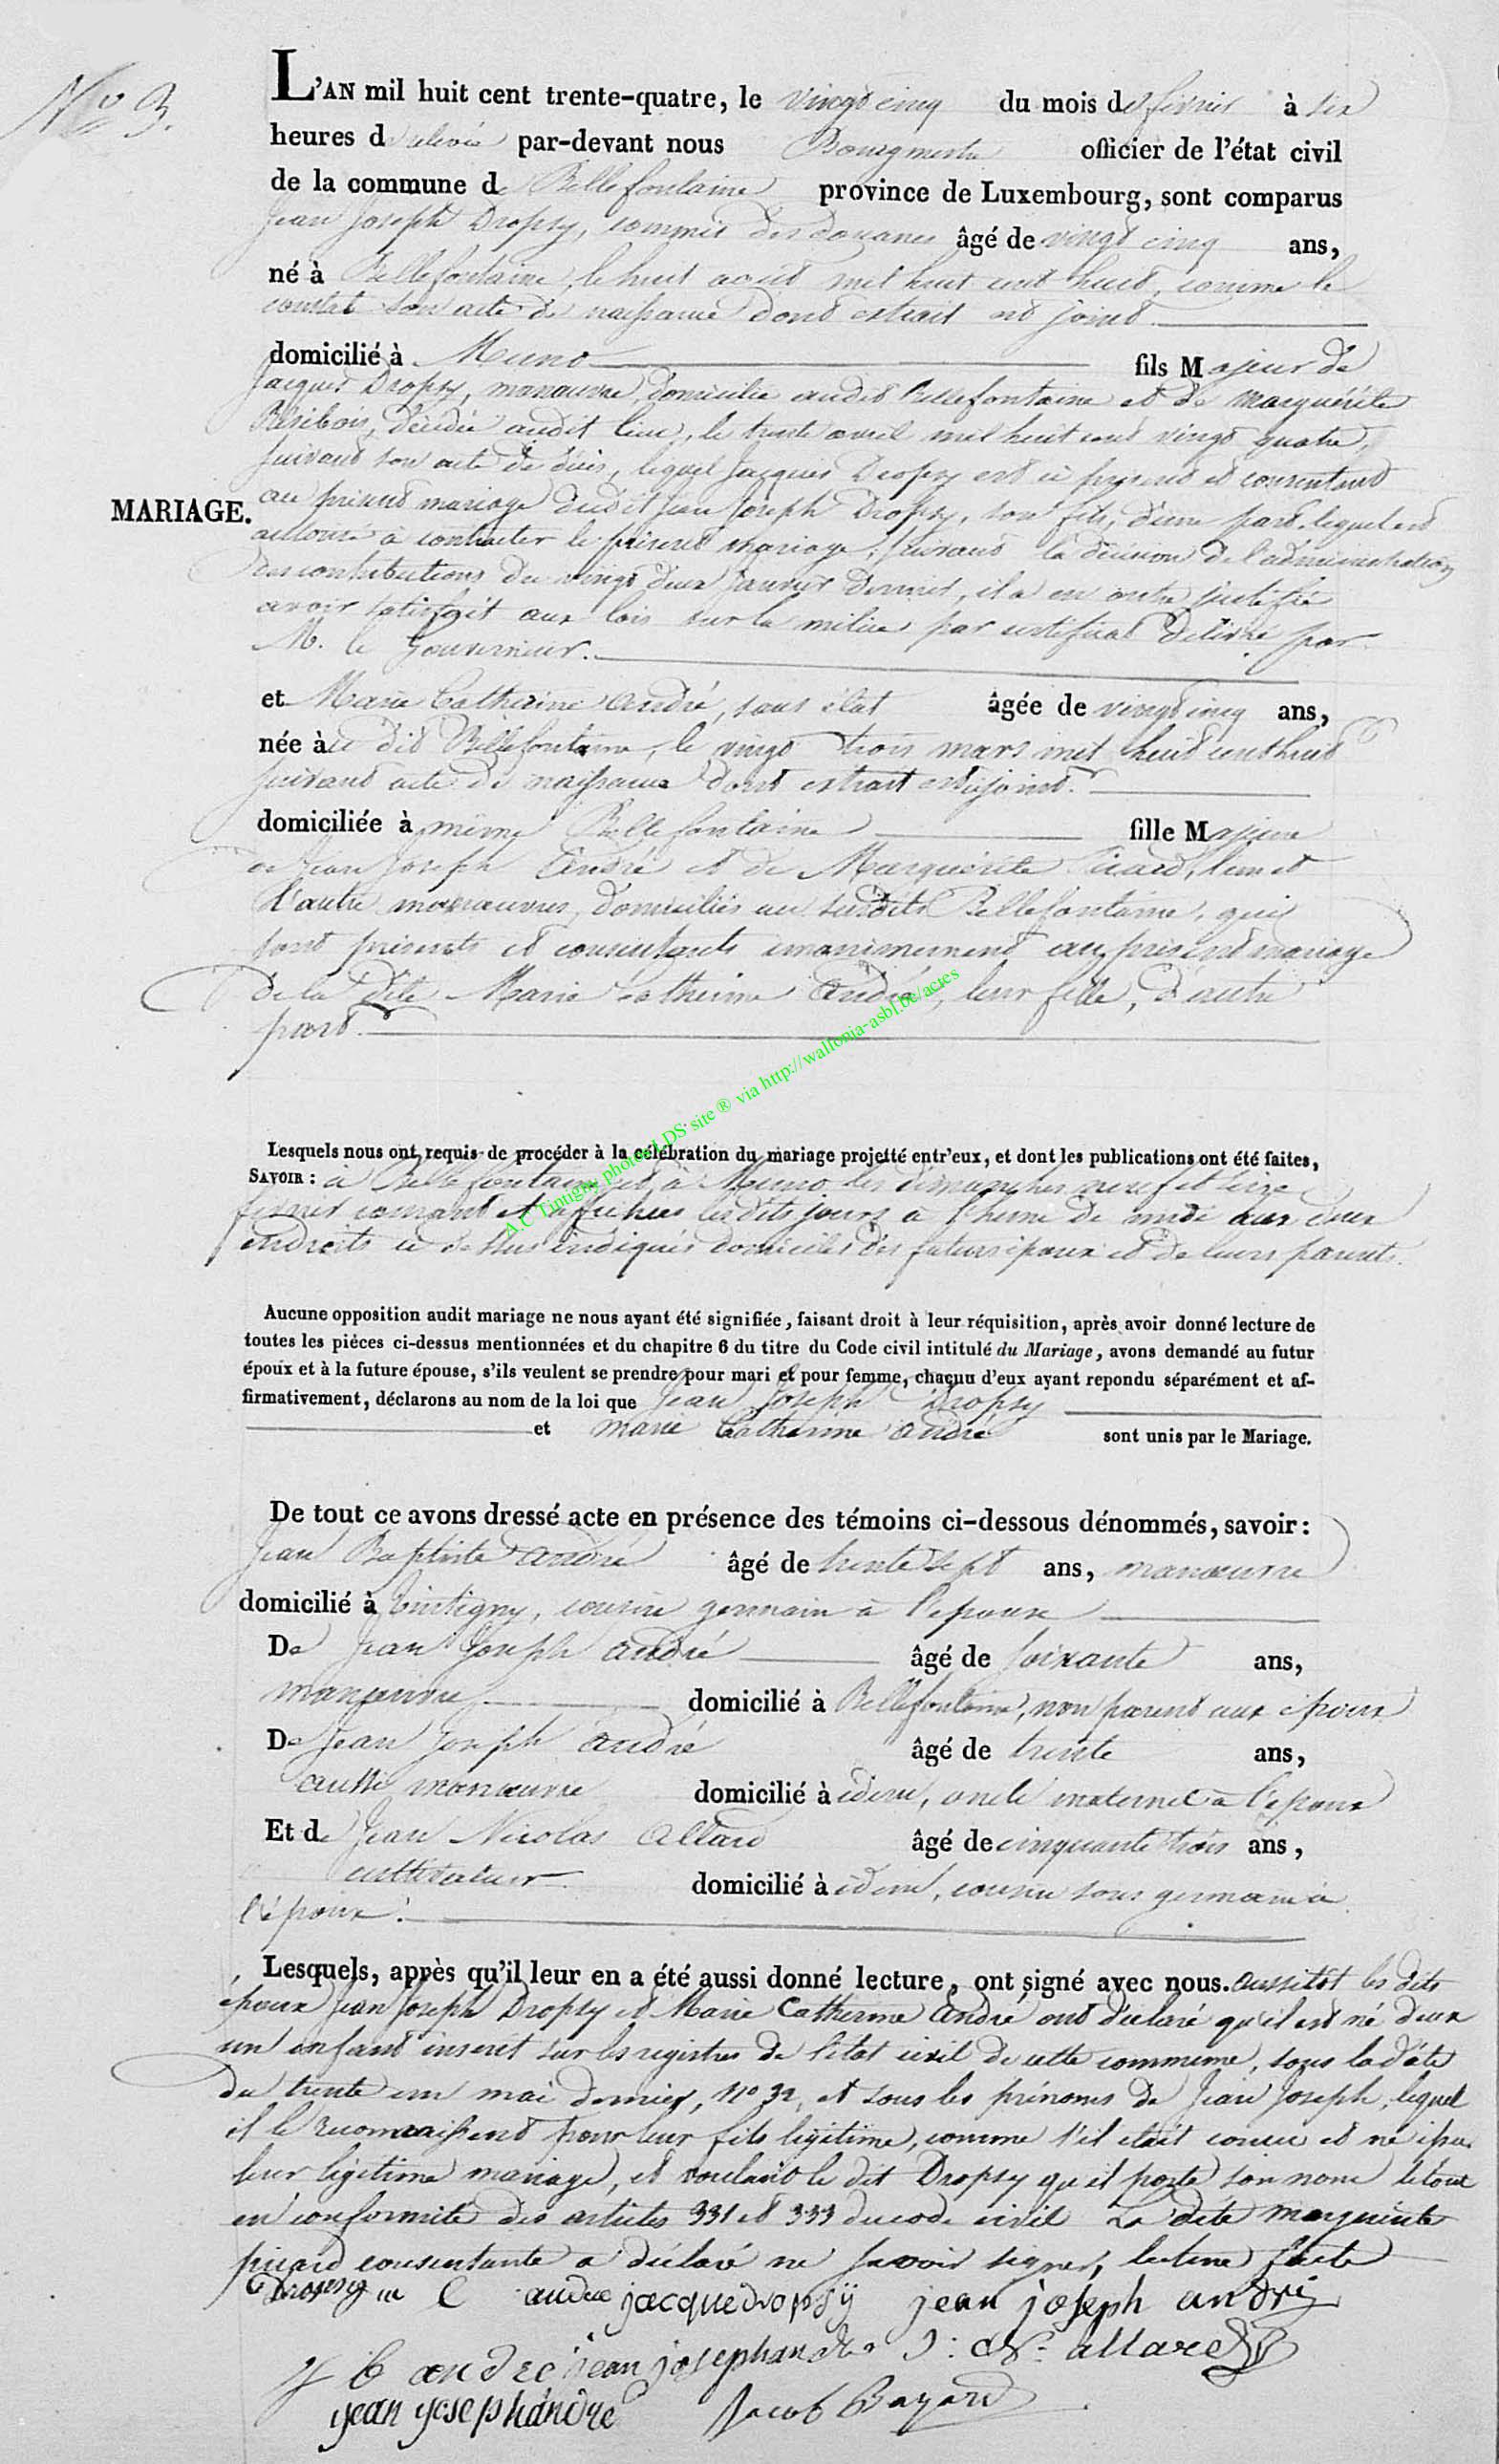 No 3.
L'AN mil huit cent trente-quatre, le vingt cinq du mois de février à six
heures de relevée par-devant nous Bourgmestre officier de l'état civil
de la commune de Bellefontaine province de Luxembourg, sont comparus
Jean Joseph Dropsy, commis des douanes âgé de vingt cinq ans,
né à Bellefontaine, le huit août mil huit cent huit, comme le
constat son acte de naissance dont extrait est joint.
domicilié à Muno fils Majeur de
Jacques Dropsy, manœuvre, domicilié audit Bellefontaine et de Marguérite
décédée audit lieu, le trente avril mil huit cent vingt quatre,
suivant son acte de décès, lequel Jacques Dropsy est ci présent et consentant
MARIAGE.
au présent mariage dudit Jean Joseph Dropsy, son fils, d'une part, lequel est
autorisé à contracter le présent mariage, suivant la décision de l'administration
des contributions du vingt deux janvier dernier, il a en outre justifié
avoir satisfait aux lois sur la milice par certificat délivré par
M. le Gouverneur.
et Marie Catherine André, sans état âgée de vingt cinq ans,
née à u dit Bellefontaine, le vingt trois mars mil huit cent huit
suivant acte de naissance dont extrait est joint.
domiciliée à même Bellefontaine fille Majeure
de Jean Joseph André et de Marguérite Picard, l'un et
l'autre manœuvres, domiciliés au susdits Bellefontaine, qui
sont présents et consentants unanimement au présent mariage
de la dite Marie Catherine André, leur fille, d'autre
part.
Lesquels nous ont requis de procéder à la célébration du mariage projetté entr'eux, et dont les publications ont été faites,
SAVOIR : à Bellefontaine et à Muno les dimanches neuf et seize
février courant et affichées lesdits jours à l'heure de midi aux deux
endroits ci dessus indiqués domiciles des futurs époux et de leurs parents.
Aucune opposition audit mariage ne nous ayant été signifiée, faisant droit à leur réquisition, après avoir donné lecture de
toutes les pièces ci-dessus mentionnées et du chapitre 6 du titre du Code civil intitulé du Mariage, avons demandé au futur
époux et à la future épouse, s'ils veulent se prendre pour mari et pour femme, chacun d'eux ayant repondu séparément et af-
firmativement, déclarons au nom de la loi que Jean Joseph Dropsy
et Marie Catherine André sont unis par le Mariage.
De tout ce avons dressé acte en présence des témoins ci-dessous dénommés, savoir :
Jean Baptiste André âgé de trente sept ans, manœuvre
domicilié à Tintigny, cousin germain à l'epoux
De Jean Joseph André âgé de soixante ans,
manœuvre domicilié à Bellefontaine, non parent aux époux
De Jean Joseph André âgé de trente ans,
aussi manœuvre domicilié à idem, oncle maternel à l'epoux
Et de Jean Nicolas Allard âgé de cinquante trois ans,
cultivateur domicilié à idem, cousin sous germain à
l'époux.
Lesquels, après qu'il leur en a été aussi donné lecture, ont signé avec nous. aussitôt les dits
époux Jean Joseph Dropsy et Marie Catherine André ont déclaré qu'il est né deux
un enfant inscrit sur les registres de l'état civil de cette commune, sous la date
du trente un mai dernier, no 32, et sous les prénoms de Jean Joseph, lequel
il le reconnaissent pour leur fils légitime, comme s'il était conçu et né
leur légitime mariage, et voulant le dit Dropsy qu'il porte son nom le tout
en conformité des articles 331 et 333 du code civil La dite Marguérite
picard consentante a déclaré ne savoir signer, lecture faite
Dropsy m C andre jacque dropsÿ jean joseph andre
J b andre jean joseph andre J: N. allard
jean joseph andre Jacob Bayard
A.C Tintigny photos LDS site ® via http://wallonia-asbl.be/actes